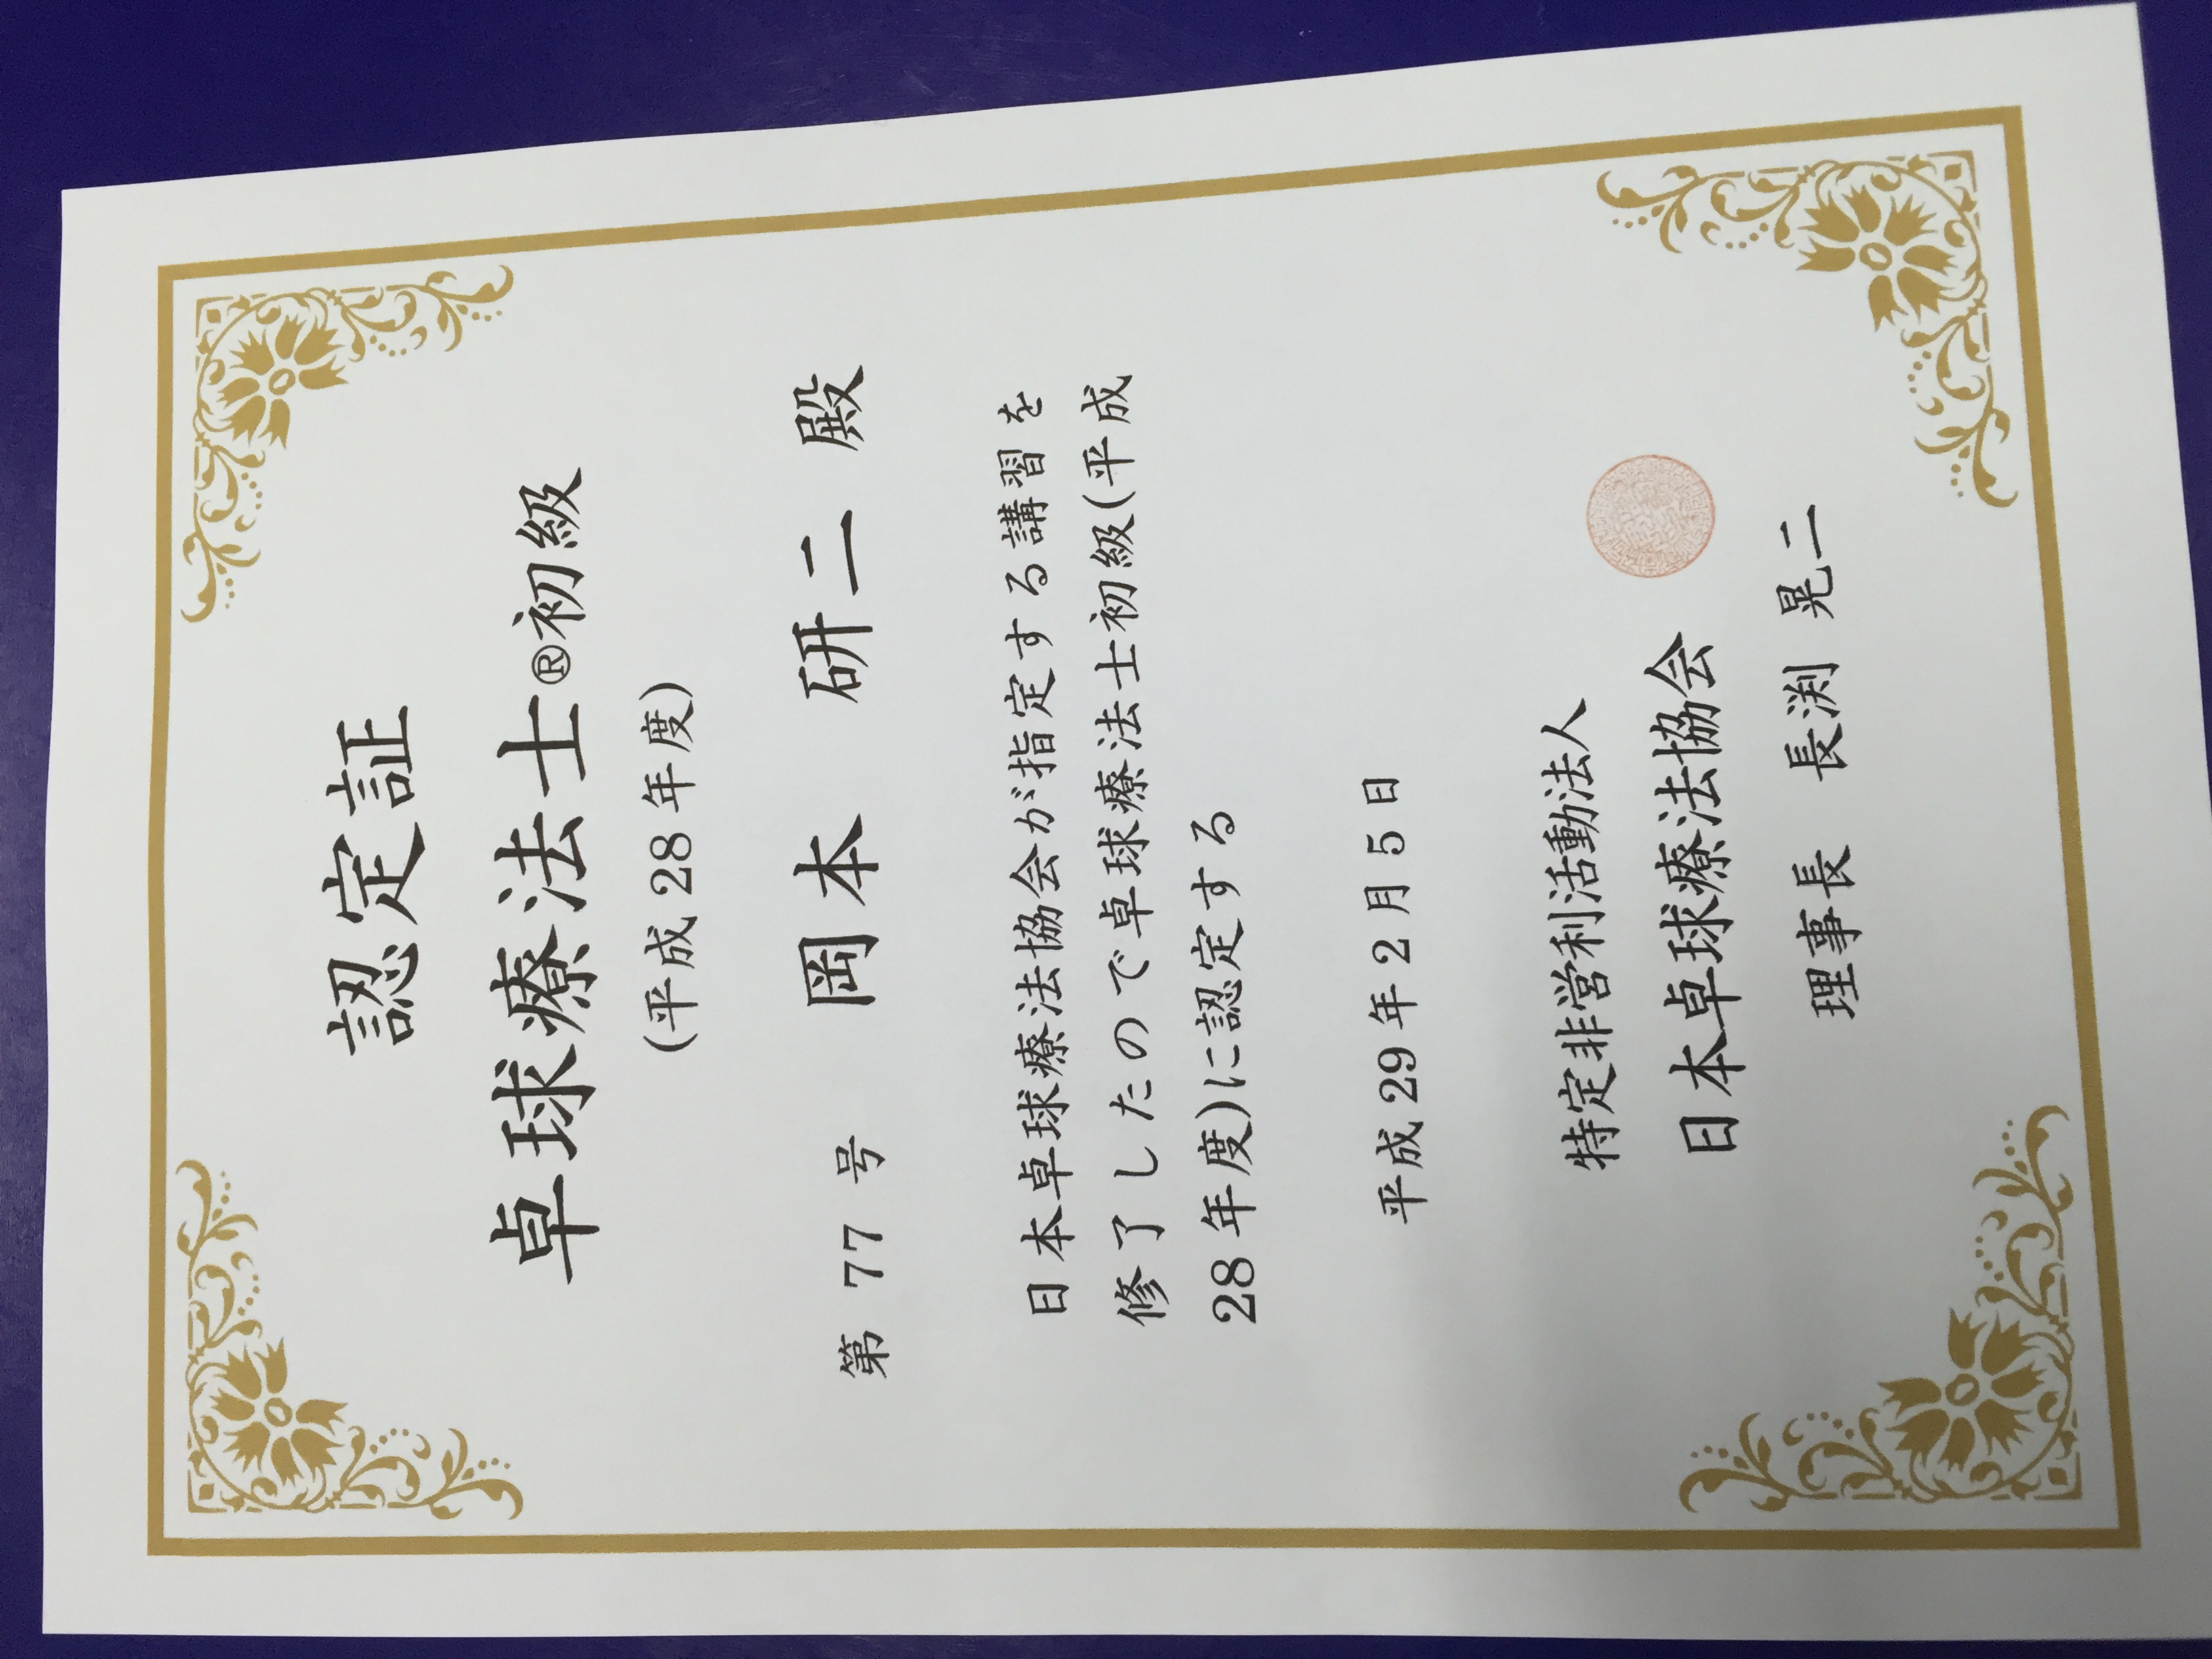 認定証
卓球療法士®初級
(平成28年度)
第 77 号 岡本 研二 殿
日本卓球療法協会が指定する講習を
修了したので卓球療法士初級(平成
28年度)に認定する
平成29年2月5日
特定非営利活動法人
日本卓球療法協会
理事長 長渕 晃二